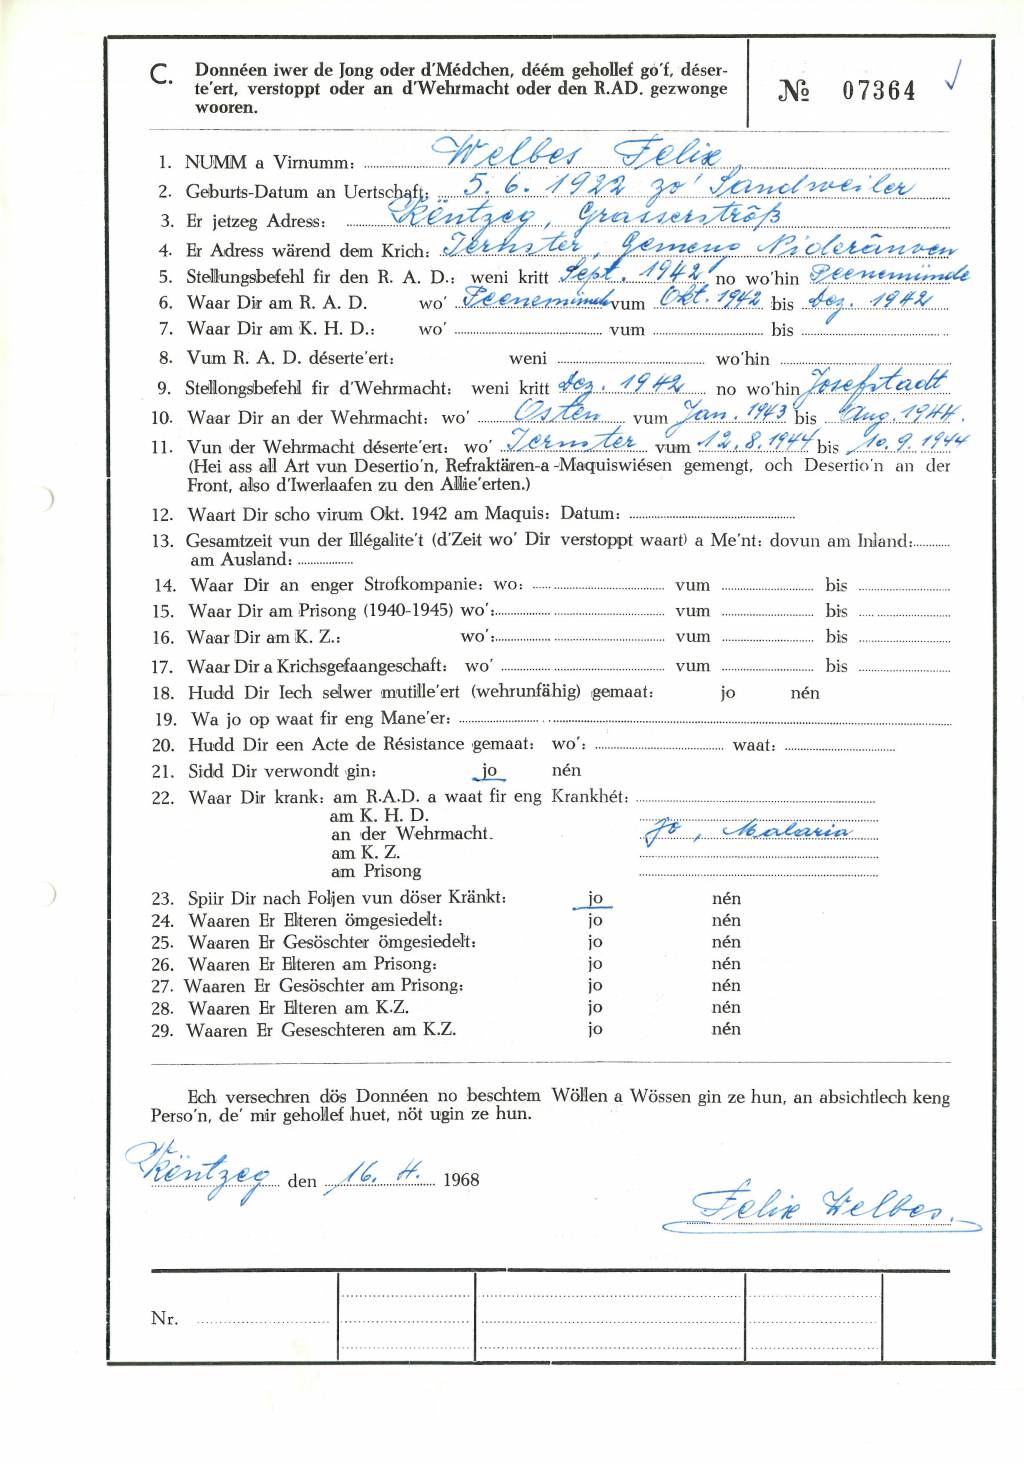 C. Donnéen iwer de Jong oder d'Médchen, déém gehollef go'f, déser-
te'ert, verstoppt oder an d'Wehrmacht oder den R.AD. gezwonge
wooren.
№ 07364
1. NUMM a Virnumm: Welbes Felix
2. Geburts-Datum an Uertschaft: 5.6.1922 zo' Sandweiler
3. Er jetzeg Adress: Rëntzeg, Grasserströß
4. Er Adress wärend dem Krich: Iernster, Gemeng Nideränven
5. Stellungsbefehl fir den R. A. D.: weni kritt Sept. 1942 no wo'hin Peenemünde
6. Waar Dir am R. A. D. wo' Peenemünde vum Okt. 1942 bis Dez. 1942
7. Waar Dir am K. H. D.: wo' vum bis
8. Vum R. A. D. déserte'ert: weni wo'hin
9. Stellongsbefehl fir d'Wehrmacht: weni kritt Dez. 1942 no wo'hin Josefstadt
10. Waar Dir an der Wehrmacht: wo' Osten vum Jan. 1943 bis Aug. 1944.
11. Vun der Wehrmacht déserte'ert: wo' Iernster vum 12.8.1944 bis 10.9.1944
(Hei ass all Art vun Desertio'n, Refraktären-a-Maquiswiésen gemengt, och Desertio'n an der
Front, also d'Iwerlaafen zu den Allie'erten.)
12. Waart Dir scho virum Okt. 1942 am Maquis: Datum:
13. Gesamtzeit vun der Illégalite't (d'Zeit wo' Dir verstoppt waart) a Me'nt: dovun am Inland:
am Ausland:
14. Waar Dir an enger Strofkompanie: wo: vum bis
15. Waar Dir am Prisong (1940-1945) wo': vum bis
16. Waar Dir am K. Z.: wo': vum bis
17. Waar Dir a Krichsgefaangeschaft: wo' vum bis
18. Hudd Dir Iech selwer mutille'ert (wehrunfähig) gemaat: jo nén
19. Wa jo op waat fir eng Mane'er:
20. Hudd Dir een Acte de Résistance gemaat: wo': waat:
21. Sidd Dir verwondt gin: jo nén
22. Waar Dir krank: am R.A.D. a waat fir eng Krankhét:
am K. H. D.
an der Wehrmacht. Jo, Malaria
am K. Z.
am Prisong
23. Spiir Dir nach Foljen vun döser Kränkt: jo nén
24. Waaren Er Elteren ömgesiedelt: jo nén
25. Waaren Er Gesöschter ömgesiedelt: jo nén
26. Waaren Er Elteren am Prisong: jo nén
27. Waaren Er Gesöschter am Prisong: jo nén
28. Waaren Er Elteren am K.Z. jo nén
29. Waaren Er Geseschteren am K.Z. jo nén
Ech versechren dös Donnéen no beschtem Wöllen a Wössen gin ze hun, an absichtlech keng
Perso'n, de' mir gehollef huet, nöt ugin ze hun.
Rëntzeg den 16. 4. 1968
Felix Welbes.
Nr.